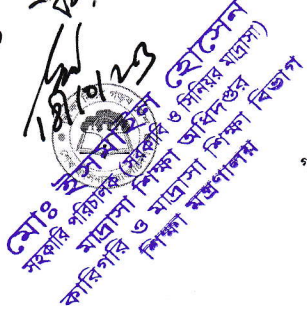 18/10/23
মোঃ ইসমাইল হোসেন
সহকারি পরিচালক (সরকারি ও সিনিয়র মাদ্রাসা)
মাদ্রাসা শিক্ষা অধিদপ্তর
কারিগরি ও মাদ্রাসা শিক্ষা বিভাগ
শিক্ষা মন্ত্রণালয়